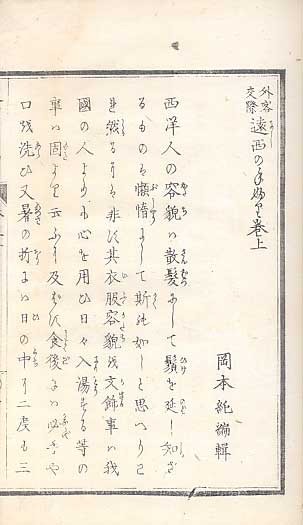 外客交際 遠西の手ぶり巻上
岡本純編輯
西洋人の容貌ハ散髪にして鬚を延し知ざ
るものハ懶惰にして斯の如しと思へりと
も然るに非ず其衣服容貌を文飾事ハ我
國の人よりも心を用ひ日々入湯する等の
事ハ固より云ふに及ばず食後にハ必ず
口を洗ひ又暑の折にハ日の中に二度も三